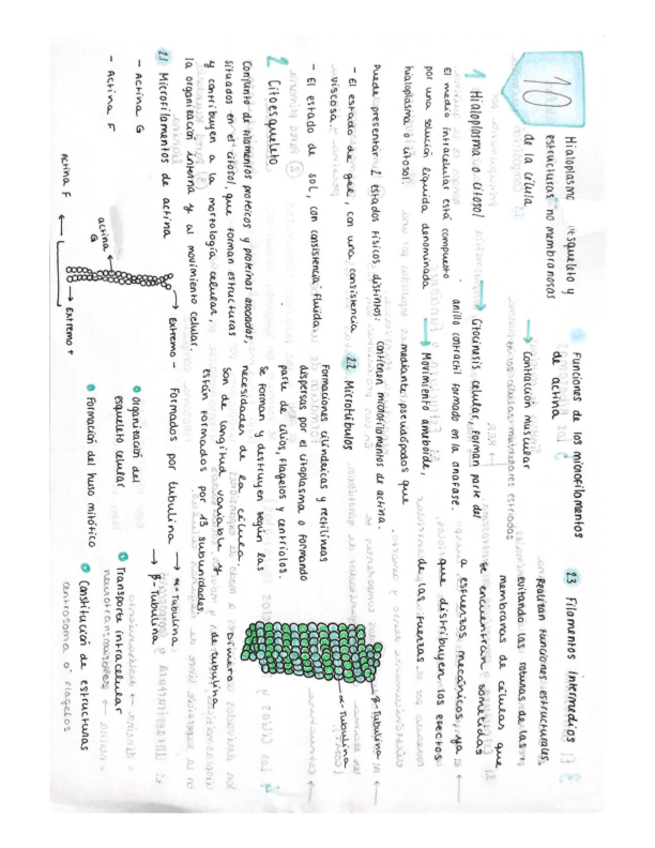 10
Hialoplasma esqueleto y
estructuras no membranosas
de la célula
1 Hialoplasma o citosol
El medio intracelular está compuesto
por una solución líquida denominada
hialoplasma o citosol.
Puede presentar 2 estados físicos distintos:
- El estado de gel, con una consistencia
viscosa.
- El estado de sol, con consistencia fluida.
2 Citoesqueleto
Conjunto de filamentos proteicos y proteínas asociadas,
situados en el citosol, que forman estructuras
y contribuyen a la morfología celular,
la organización interna y al movimiento celular.
2.1 Microfilamentos de actina
- Actina G
- Actina F
actina F
actina
G
Extremo -
Extremo +
Funciones de los microfilamentos
de actina
→ Contracción muscular
→ Citocinesis celular, forman parte del
anillo contractil formado en la anafase.
→ Movimiento ameboide,
mediante pseudópodos que
contienen microfilamentos de actina.
2.2 Microtúbulos
Formaciones cilíndricas y rectilíneas
dispersas por el citoplasma o formando
parte de cilios, flagelos y centriolos.
Se forman y destruyen según las
necesidades de la célula.
son de longitud variable y
están formados por 13 subunidades.
Formados por tubulina → α-Tubulina
→ β-Tubulina
dímero
de tubulina
β-Tubulina
α-Tubulina
Organización del
esqueleto celular
Formación del huso mitótico
Transporte intracelular
Constitución de estructuras
centrosoma o flagelos
2.3 Filamentos intermedios
Realizan funciones estructurales,
evitando las roturas de las
membranas de células que
se encuentran sometidas
a esfuerzos mecánicos, ya
que distribuyen los efectos
de las fuerzas